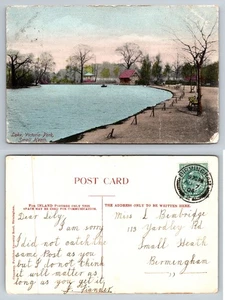 Lake, Victoria Park,
Small Heath.
POST CARD
FOR INLAND POSTAGE ONLY THIS
SPACE MAY BE USED FOR COMMUNICATION.
THE ADDRESS ONLY TO BE WRITTEN HERE.
BIRMINGHAM
Dear Lily,
I am sorry
I did not catch the
same Post as you
but I do not think
it will matter as
long as you get it
Miss L
133 Yardley Rd
Small Heath
Birmingham